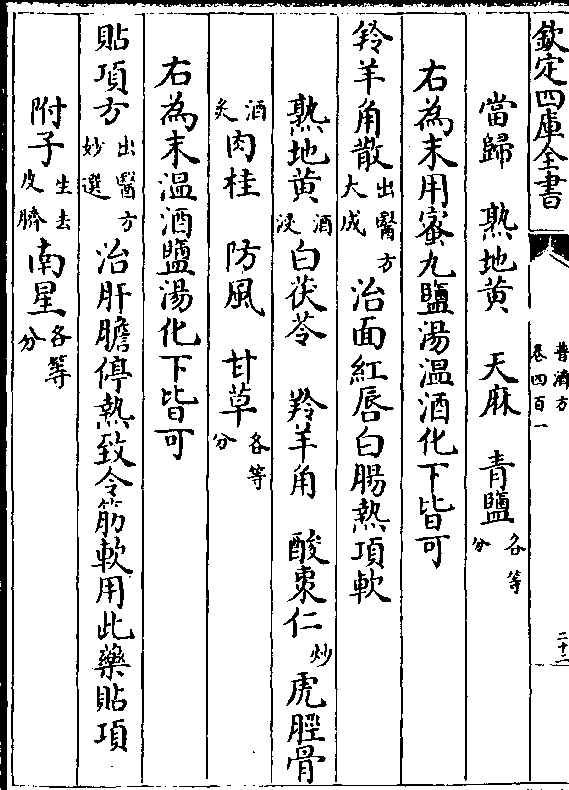 欽定四庫全書
普濟方
卷四百一
二十二
當歸 熟地黄 天麻 青鹽各等分
右為末用蜜丸鹽湯温酒化下皆可
羚羊角散出醫方大成治面紅唇白腸熱項軟
熟地黄酒浸白茯苓 羚羊角 酸棗仁炒虎脛骨
酒炙肉桂 防風 甘草各等分
右為末温酒鹽湯化下皆可
貼項方出醫方妙選治肝膽停熱致令筋軟用此藥貼項
附子生去皮臍南星各等分